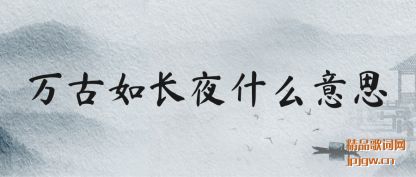 万古如长夜什么意思
精品歌词网
jpjgw.cn